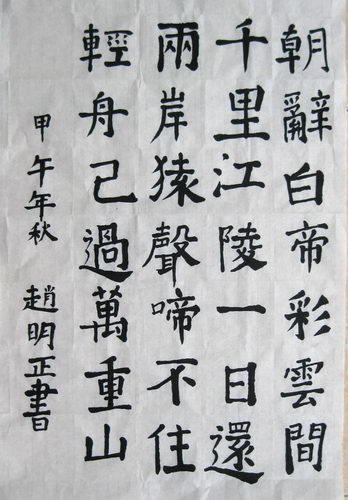 朝辭白帝彩雲間
千里江陵一日還
兩岸猿聲啼不住
輕舟已過萬重山
甲午年秋 趙明正書